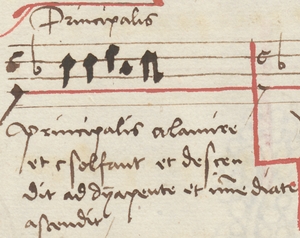 Principalis
principalis alamire
et csolfaut et descen
dit ad dyapente et im̄ediate
ascendit